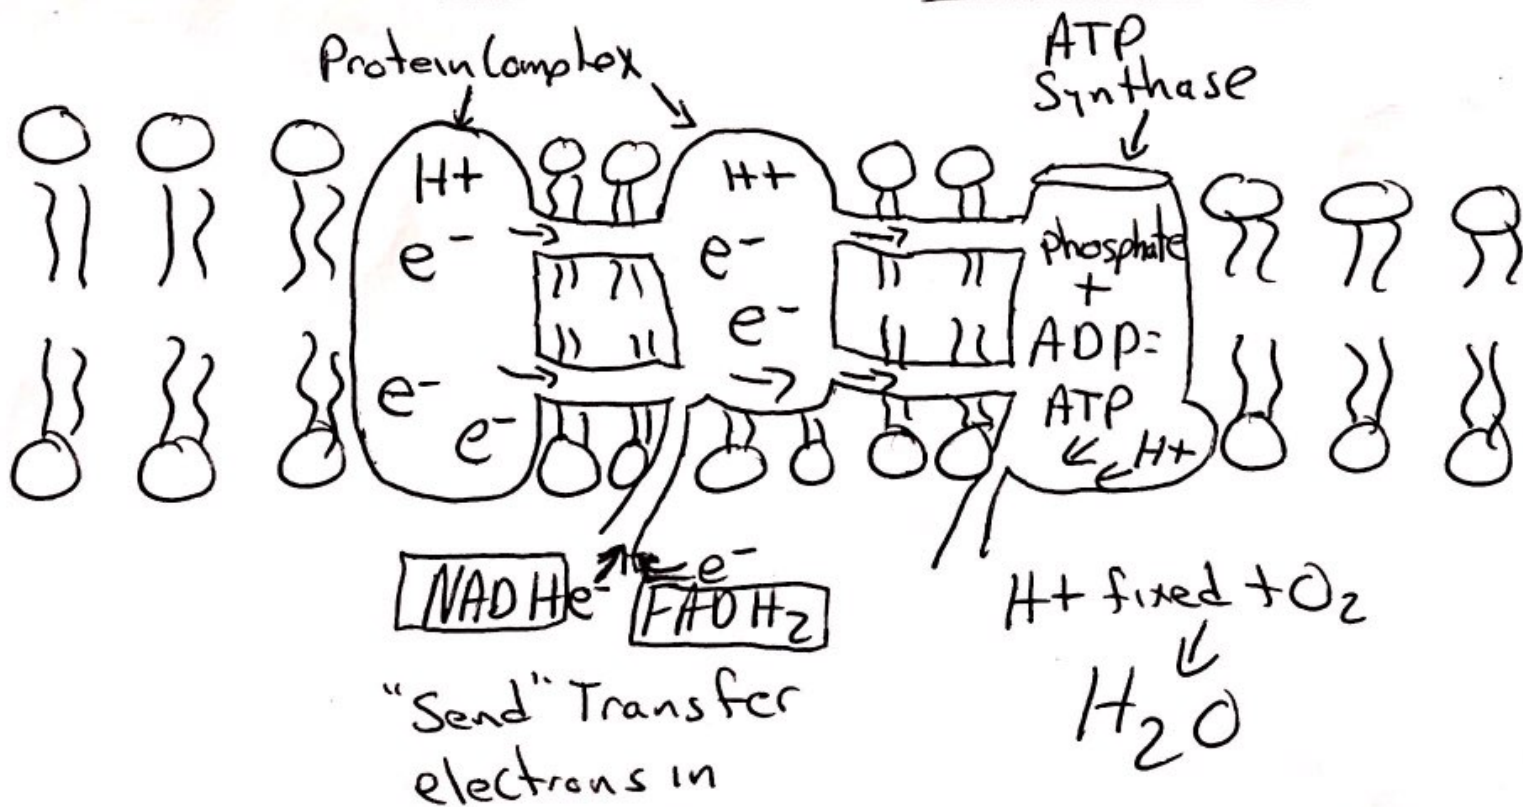 Protein Complex
ATP
Synthase
H+
e-
e-
e-
H+
e-
e-
phosphate
+
ADP=
ATP
H+
NADH e-
e-
FADH2
"Send" Transfer
electrons in
H+ fixed + O2
H2O